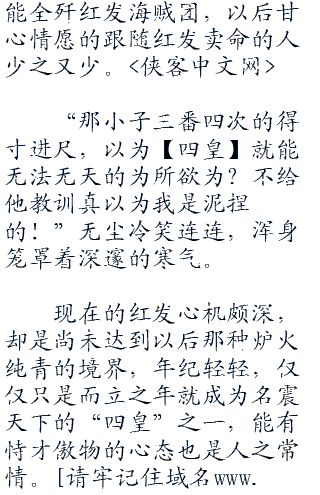 能全歼红发海贼团，以后甘
心情愿的跟随红发卖命的人
少之又少。<侠客中文网>
“那小子三番四次的得
寸进尺，以为【四皇】就能
无法无天的为所欲为？不给
他教训真以为我是泥捏
的！”无尘冷笑连连，浑身
笼罩着深邃的寒气。
现在的红发心机颇深，
却是尚未达到以后那种炉火
纯青的境界，年纪轻轻，仅
仅只是而立之年就成为名震
天下的“四皇”之一，能有
恃才傲物的心态也是人之常
情。[请牢记住域名www.